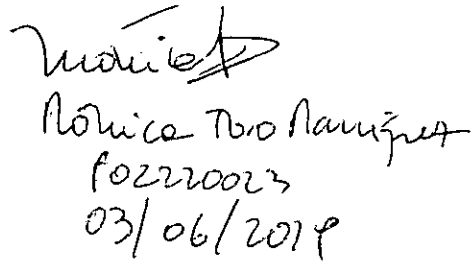 Mónica
Mónica Toro Ramírez
P02220023
03/06/2019